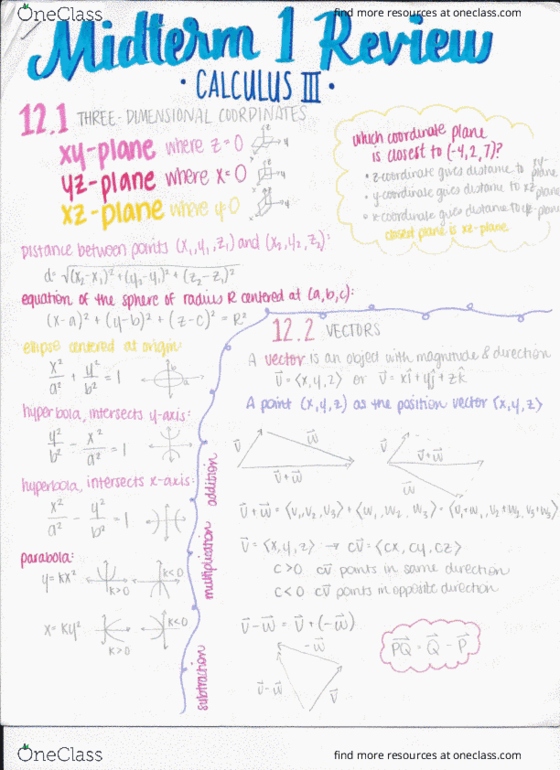 OneClass
find more resources at oneclass.com
Midterm 1 Review
• CALCULUS III •
12.1 THREE-DIMENSIONAL COORDINATES
xy-plane where z=0
yz-plane where x=0
xz-plane where y=0
which coordinate plane
is closest to (-4,2,7)?
• z-coordinate gives distance to xy-plane
• y-coordinate gives distance to xz plane
• x-coordinate gives distance to yz-plane
closest plane is xz-plane
Distance between points (x₁,y₁,z₁) and (x₂,y₂,z₂):
d=√(x₂-x₁)²+(y₂-y₁)²+(z₂-z₁)²
equation of the sphere of radius R centered at (a,b,c):
(x-a)²+(y-b)²+(z-c)²=R²
ellipse centered at origin:
x²/a² + y²/b² = 1
hyperbola, intersects y-axis:
y²/b² - x²/a² = 1
hyperbola, intersects x-axis:
x²/a² - y²/b² = 1
parabola:
y=kx² k>0 k<0
x=ky² k>0 k<0
12.2 VECTORS
A vector is an object with magnitude & direction
v⃗ = ⟨x,y,z⟩ or v⃗ = xî+yĵ+zk̂
A point (x,y,z) as the position vector ⟨x,y,z⟩
addition
v⃗ w⃗ v⃗+w⃗
v⃗ v⃗+w⃗ w⃗
v⃗+w⃗ = ⟨v₁,v₂,v₃⟩ + ⟨w₁,w₂,w₃⟩ = ⟨v₁+w₁,v₂+w₂,v₃+w₃⟩
multiplication
v⃗=⟨x,y,z⟩ → cv⃗=⟨cx,cy,cz⟩
c>0 cv⃗ points in same direction
c<0 cv⃗ points in opposite direction
subtraction
v⃗-w⃗ = v⃗+(-w⃗)
-w⃗
v⃗-w⃗ v⃗
PQ⃗ = Q⃗ - P⃗
OneClass
find more resources at oneclass.com